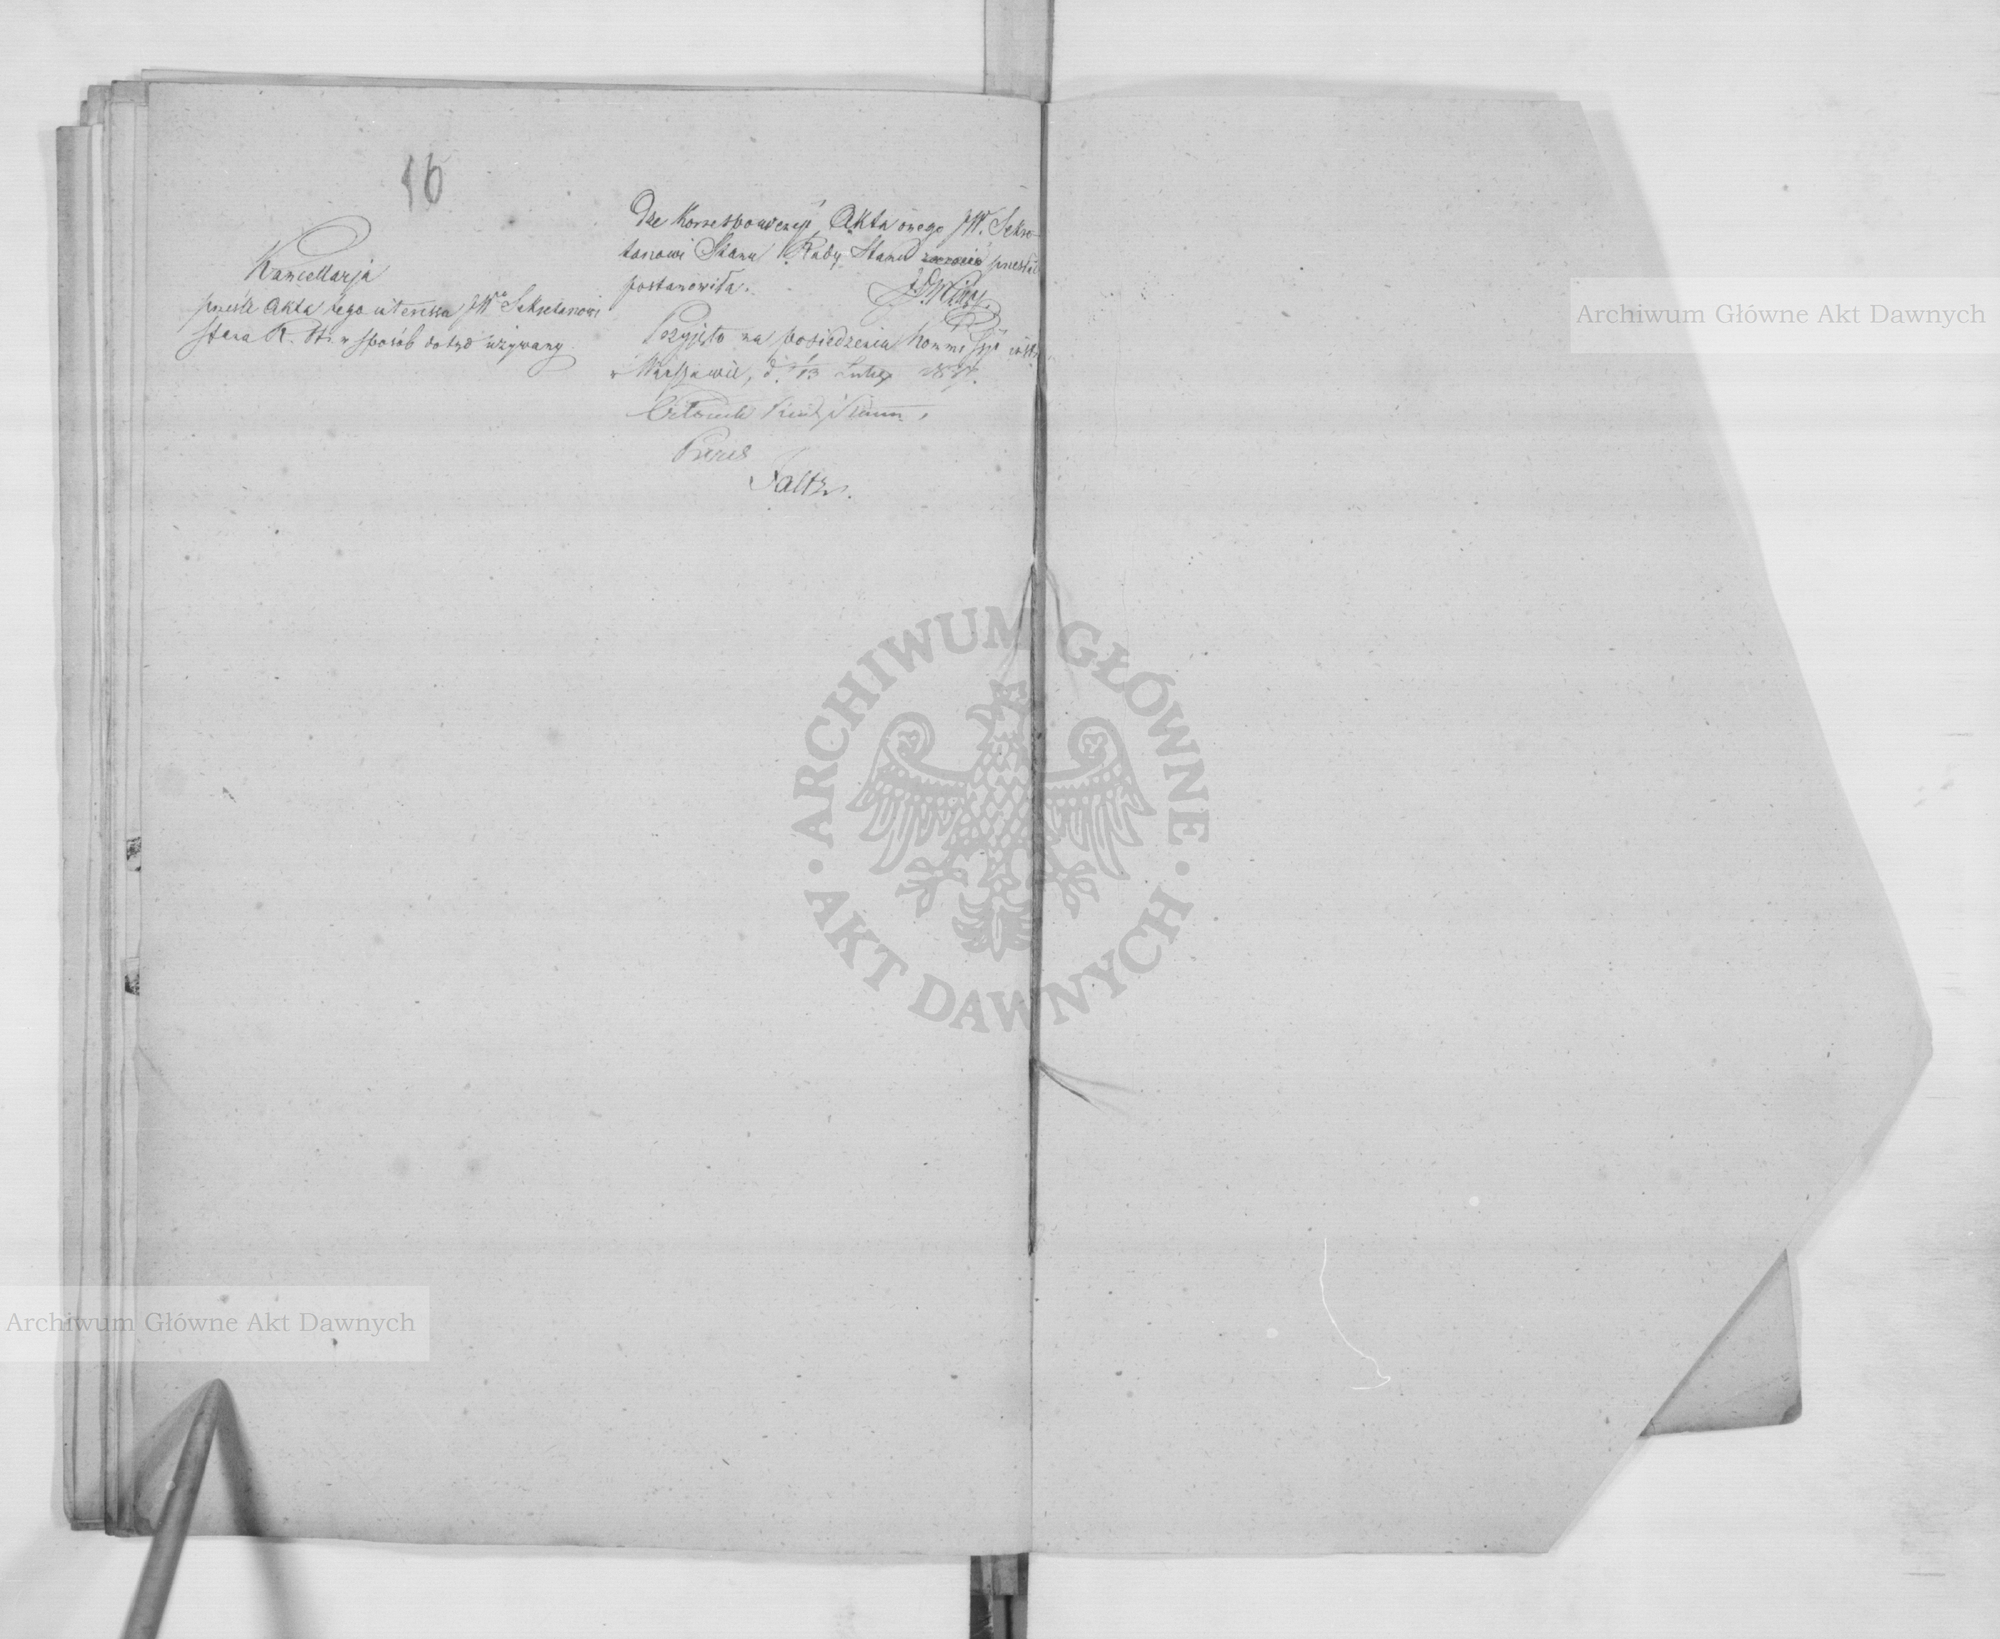 16
Kancellarja
prześle Akta tego interessu JWu Sekretarzowi
Stanu R. St. w sposób dotąd używany.
dze Korrespondencyi, Akta onego JW. Sekre-
tarzowi Stanu Rady Stanu przesłać
postanowiła.
Przyjęto na posiedzeniu Kommissyi
w Warszawie, d. 1/13 Lutego
Radzca Stanu,
Faltz.
Archiwum Główne Akt Dawnych
Archiwum Główne Akt Dawnych
ARCHIWUM GŁÓWNE
AKT DAWNYCH